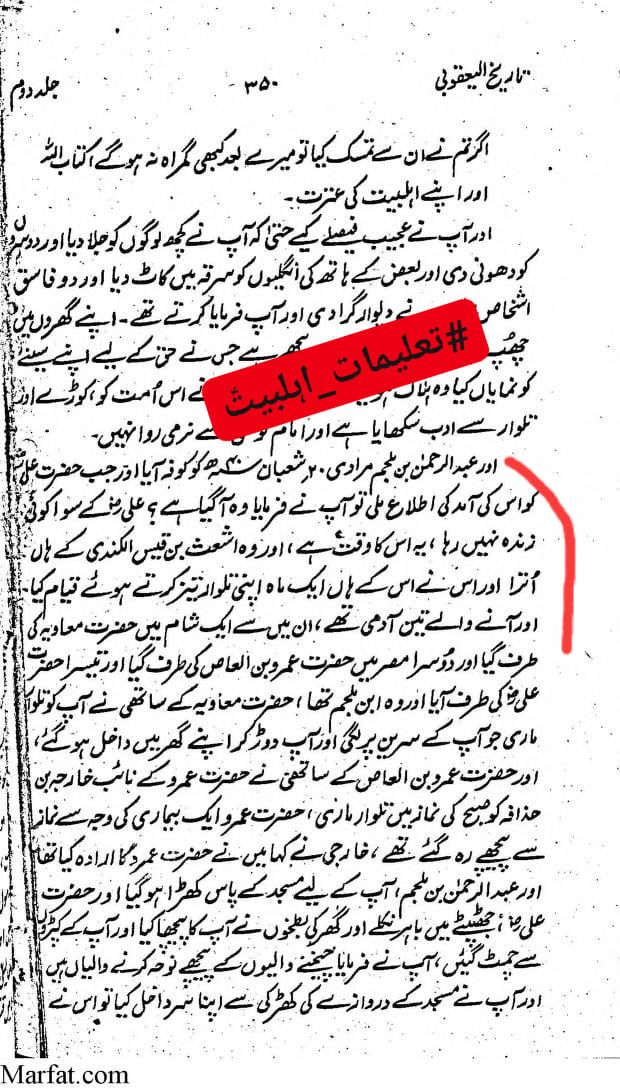 تاریخ الیعقوبی
۳۵۰
جلد دوم
اگر تم نے ان سے تمسک کیا تو میرے بعد کبھی گمراہ نہ ہو گے اکتاب اللہ
اور اپنے اہلبیت کی عترت۔
اور آپ نے عجیب فیصلے کیے حتیٰ کہ آپ نے کچھ لوگوں کو جلا دیا اور دوسروں
کو دھونی دی اور بعض کے ہاتھ کی انگلیوں کو سرقہ میں کاٹ دیا اور دو فاسق
اشخاص نے دیوار گرا دی اور آپ فرمایا کرتے تھے۔ اپنے گھروں میں
چھپ ہے جس نے حق کے لیے اپنے سینے
#تعلیمات_اہلبیتؑ
کو نمایاں کیا وہ نے اس اُمت کو، کوڑے اور
تلوار سے ادب سکھایا ہے اور امام سے نرمی روا نہیں۔
اور عبدالرحمٰن بن ملجم مرادی ۲۰ شعبان ۴۰ھ کو کوفہ آیا اور جب حضرت علیؓ
کو اس کی آمد کی اطلاع ملی تو آپ نے فرمایا وہ آگیا ہے؟ علیؓ کے سوا کوئی
زندہ نہیں رہا، یہ اس کا وقت ہے، اور وہ اشعث بن قیس الکندی کے ہاں
اُترا اور اس نے اس کے ہاں ایک ماہ اپنی تلوار تیز کرتے ہوئے قیام کیا۔
اور آنے والے تین آدمی تھے، ان میں سے ایک شام میں حضرت معاویہ کی
طرف گیا اور دوسرا مصر میں حضرت عمرو بن العاص کی طرف گیا اور تیسرا حضرت
علیؓ کی طرف آیا اور وہ ابن ملجم تھا، حضرت معاویہ کے ساتھی نے آپ کو تلوار
ماری جو آپ کے سرین پر لگی اور آپ دوڑ کر اپنے گھر میں داخل ہو گئے،
اور حضرت عمرو بن العاص کے ساتھی نے حضرت عمرو کے نائب خارجہ بن
حذافہ کو صبح کی نماز میں تلوار ماری، حضرت عمرو ایک بیماری کی وجہ سے نماز
سے پیچھے رہ گئے تھے، خارجی نے کہا میں نے حضرت عمرو کا ارادہ کیا تھا
اور عبدالرحمٰن بن ملجم، آپ کے لیے مسجد کے پاس کھڑا ہو گیا اور حضرت
علیؓ، جھٹپٹے میں باہر نکلے اور گھر کی بطخوں نے آپ کا پیچھا کیا اور آپ کے کپڑوں
سے چمٹ گئیں، آپ نے فرمایا چیخنے والیوں کے پیچھے نوحہ کرنے والیاں ہیں
اور آپ نے مسجد کے دروازے کی کھڑکی سے اپنا سر داخل کیا تو اس نے
Marfat.com